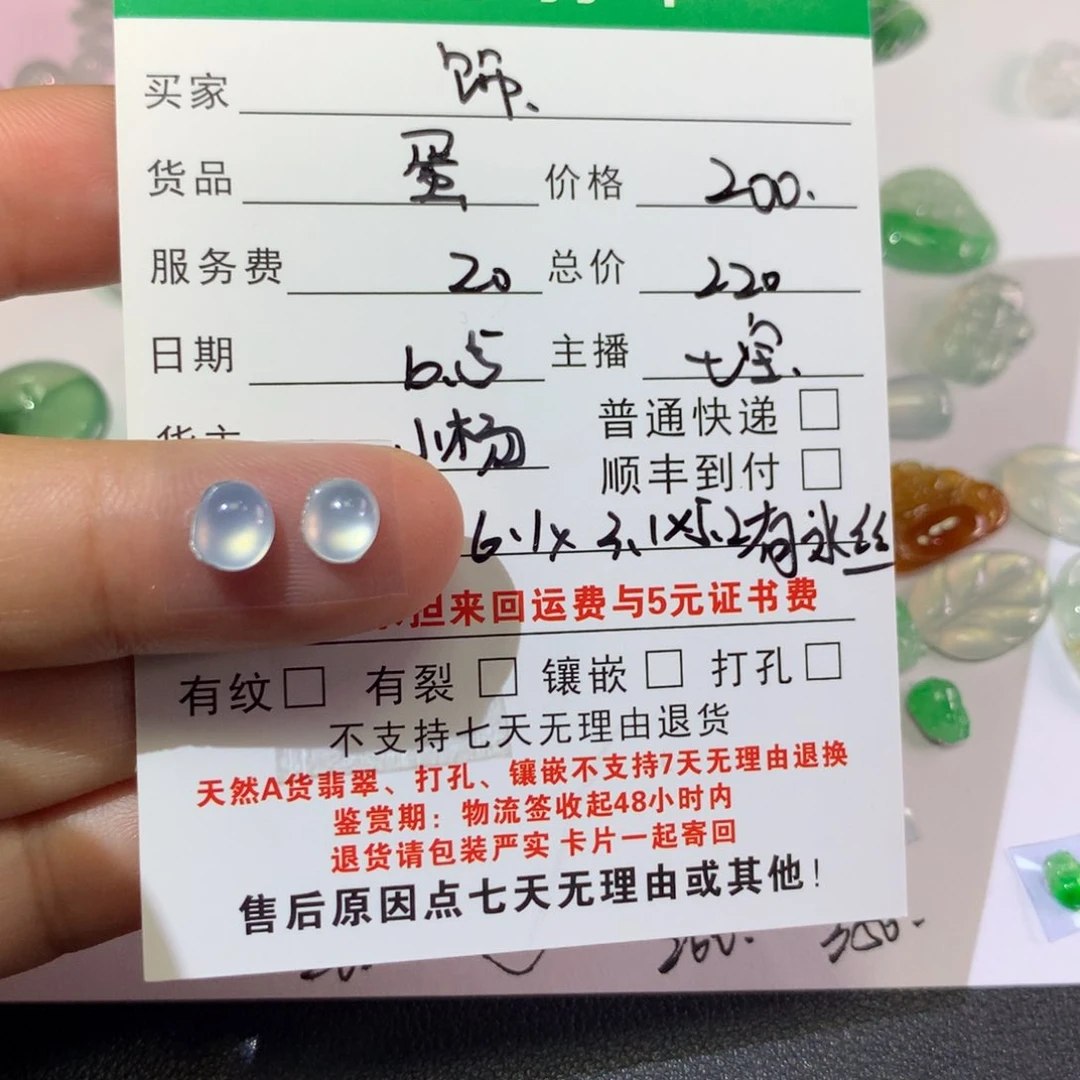 买家 饰.
货品 蛋 价格 200.
服务费 20 总价 220
日期 6.5 主播 七宝.
货主 小杨 普通快递 □
顺丰到付 □
6.1x 3.1x5.2有冰丝
担来回运费与5元证书费
有纹□ 有裂□ 镶嵌□ 打孔□
不支持七天无理由退货
天然A货翡翠、打孔、镶嵌不支持7天无理由退换
鉴赏期：物流签收起48小时内
退货请包装严实 卡片一起寄回
售后原因点七天无理由或其他！